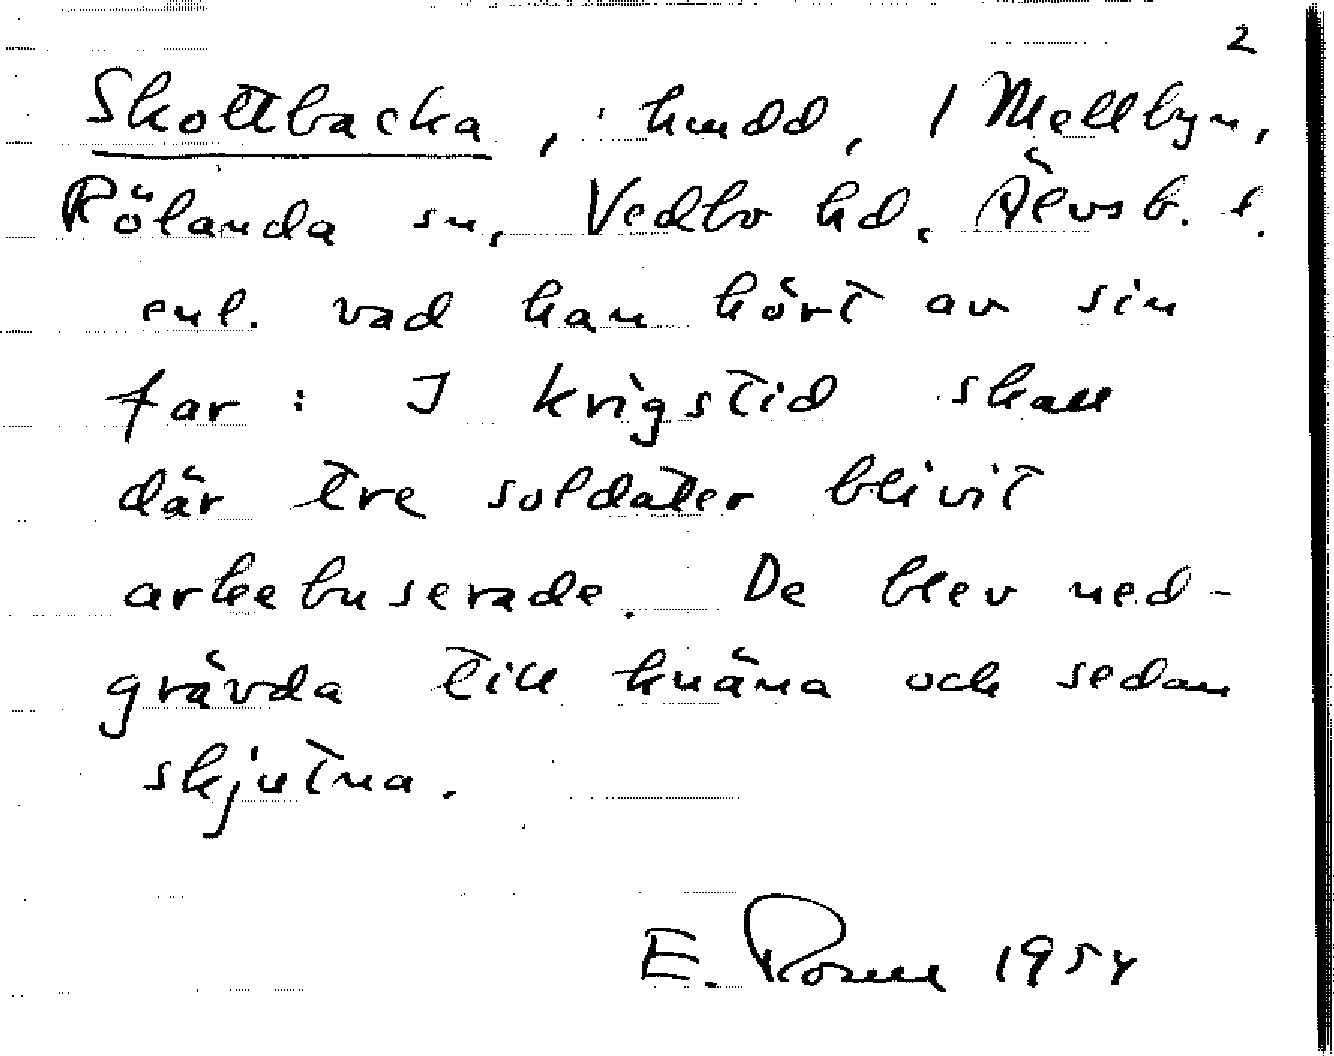 2
Skottbacka, hmdd, i Mellbyn,
Rölanda sn, Vedbo hd, Älvsb. l.
enl. vad han hört av sin
far: I krigstid skall
där tre soldater blivit
arkebuserade. De blev ned-
grävda till knäna och sedan
skjutna.
E. 1954